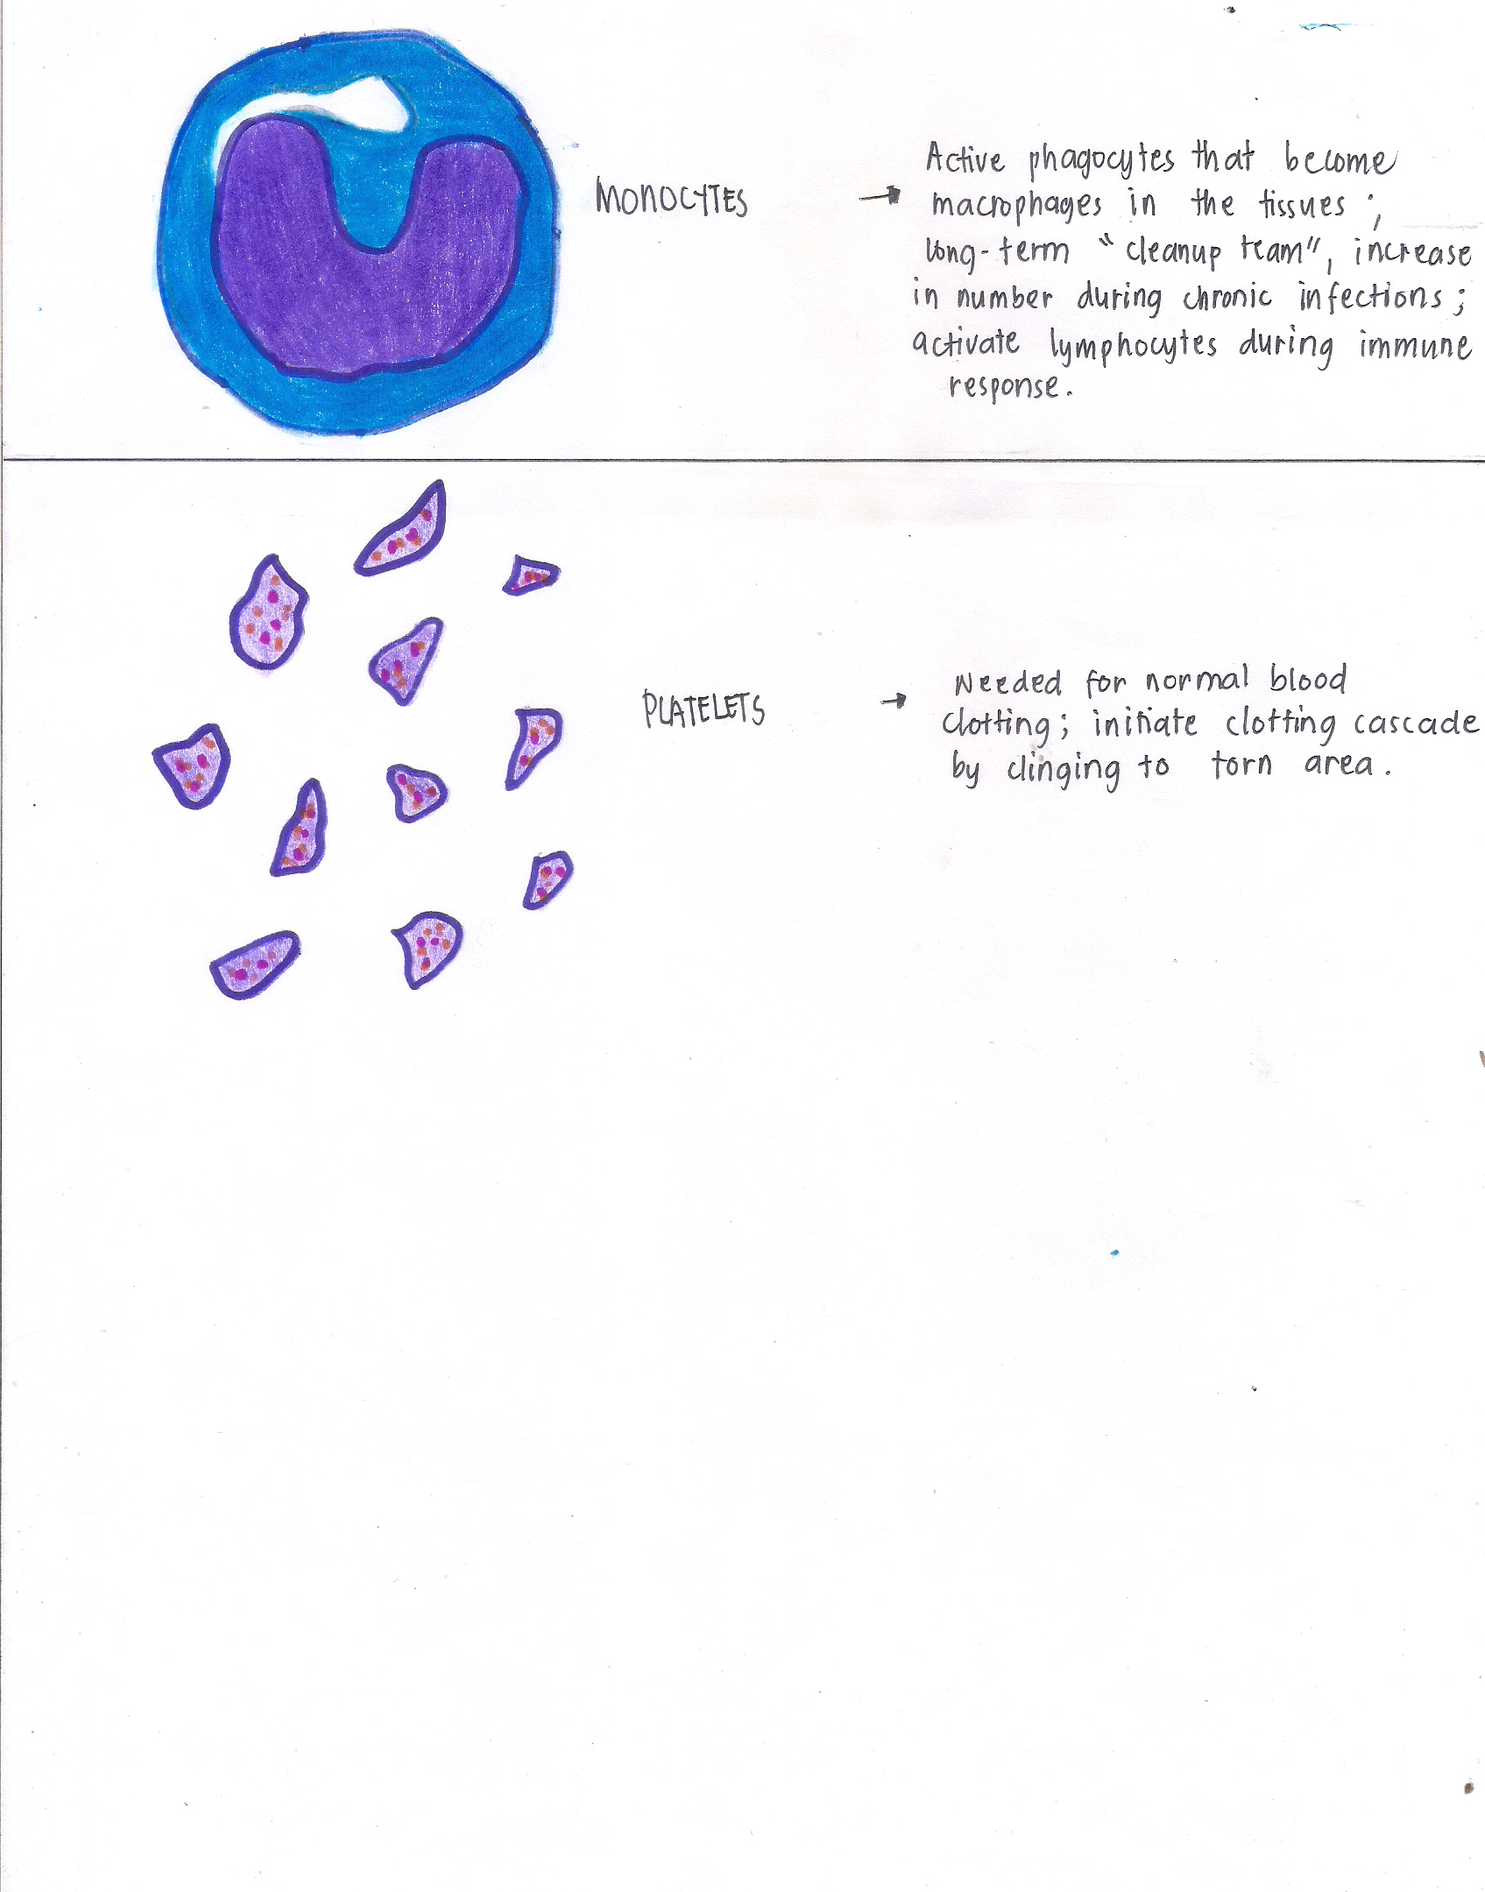 MONOCYTES
→ Active phagocytes that become
macrophages in the tissues ;
long-term "cleanup team", increase
in number during chronic infections ;
activate lymphocytes during immune
response.
PLATELETS
→ Needed for normal blood
clotting ; initiate clotting cascade
by clinging to torn area .